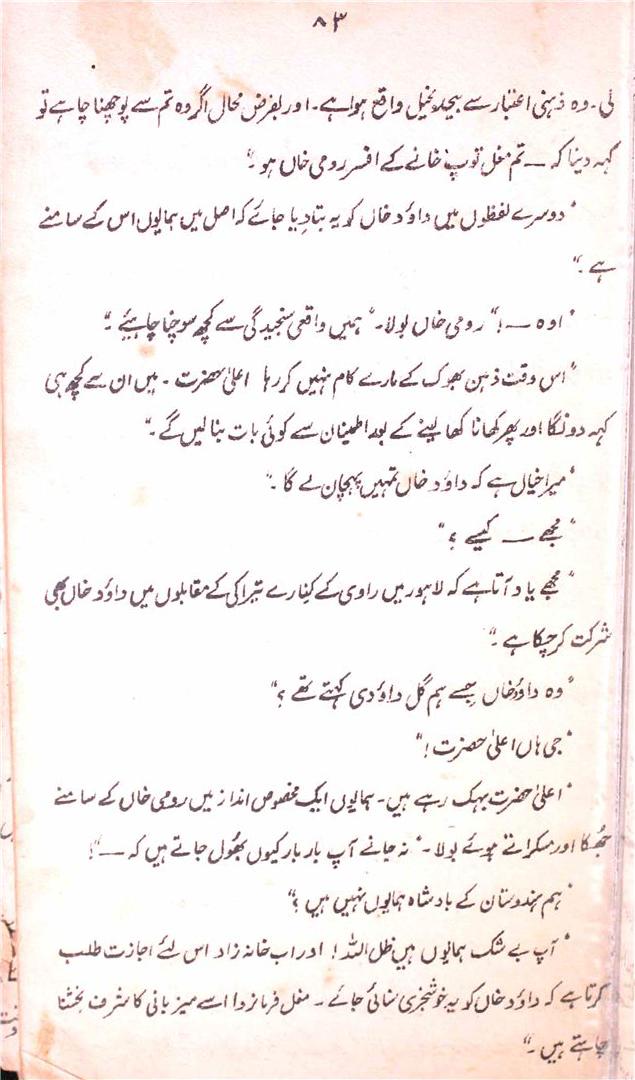 ۸۳
لی۔ وہ ذہنی اعتبار سے بیحد بخیل واقع ہوا ہے۔ اور بفرض محال اگر وہ تم سے پوچھنا چاہے تو
کہہ دینا کہ — تم مغل توپ خانے کے افسر رومی خاں ہو۔"
"دوسرے لفظوں میں داؤد خاں کو یہ بتا دیا جائے کہ اصل میں ہمایوں اس کے سامنے
ہے۔"
"اوہ —!" رومی خاں بولا۔ "ہمیں واقعی سنجیدگی سے کچھ سوچنا چاہیئے۔"
"اس وقت ذہن بھوک کے مارے کام نہیں کر رہا اعلیٰ حضرت۔ میں ان سے کچھ ہی
کہہ دونگا اور پھر کھانا کھا لینے کے بعد اطمینان سے کوئی بات بنا لیں گے۔"
"میرا خیال ہے کہ داؤد خاں تمہیں پہچان لے گا۔"
"مجھے — کیسے؟"
"مجھے یاد آتا ہے کہ لاہور میں راوی کے کنارے تیراکی کے مقابلوں میں داؤد خاں بھی
شرکت کر چکا ہے۔"
"وہ داؤد خاں جسے ہم گل داؤدی کہتے تھے؟"
"جی ہاں اعلیٰ حضرت!"
"اعلیٰ حضرت بہک رہے ہیں۔ ہمایوں ایک مخصوص انداز میں رومی خاں کے سامنے
جُھکا اور مسکراتے ہوئے بولا۔ "نہ جانے آپ بار بار کیوں بُھول جاتے ہیں کہ —"!
"ہم ہندوستان کے بادشاہ ہمایوں نہیں ہیں؟"
"آپ بے شک ہمایوں ہیں ظل اللہ! اور اب خانہ زاد اس لئے اجازت طلب
کرتا ہے کہ داؤد خاں کو یہ خوشخبری سنائی جائے۔ مغل فرمانروا اسے میزبانی کا شرف بخشنا
چاہتے ہیں۔"